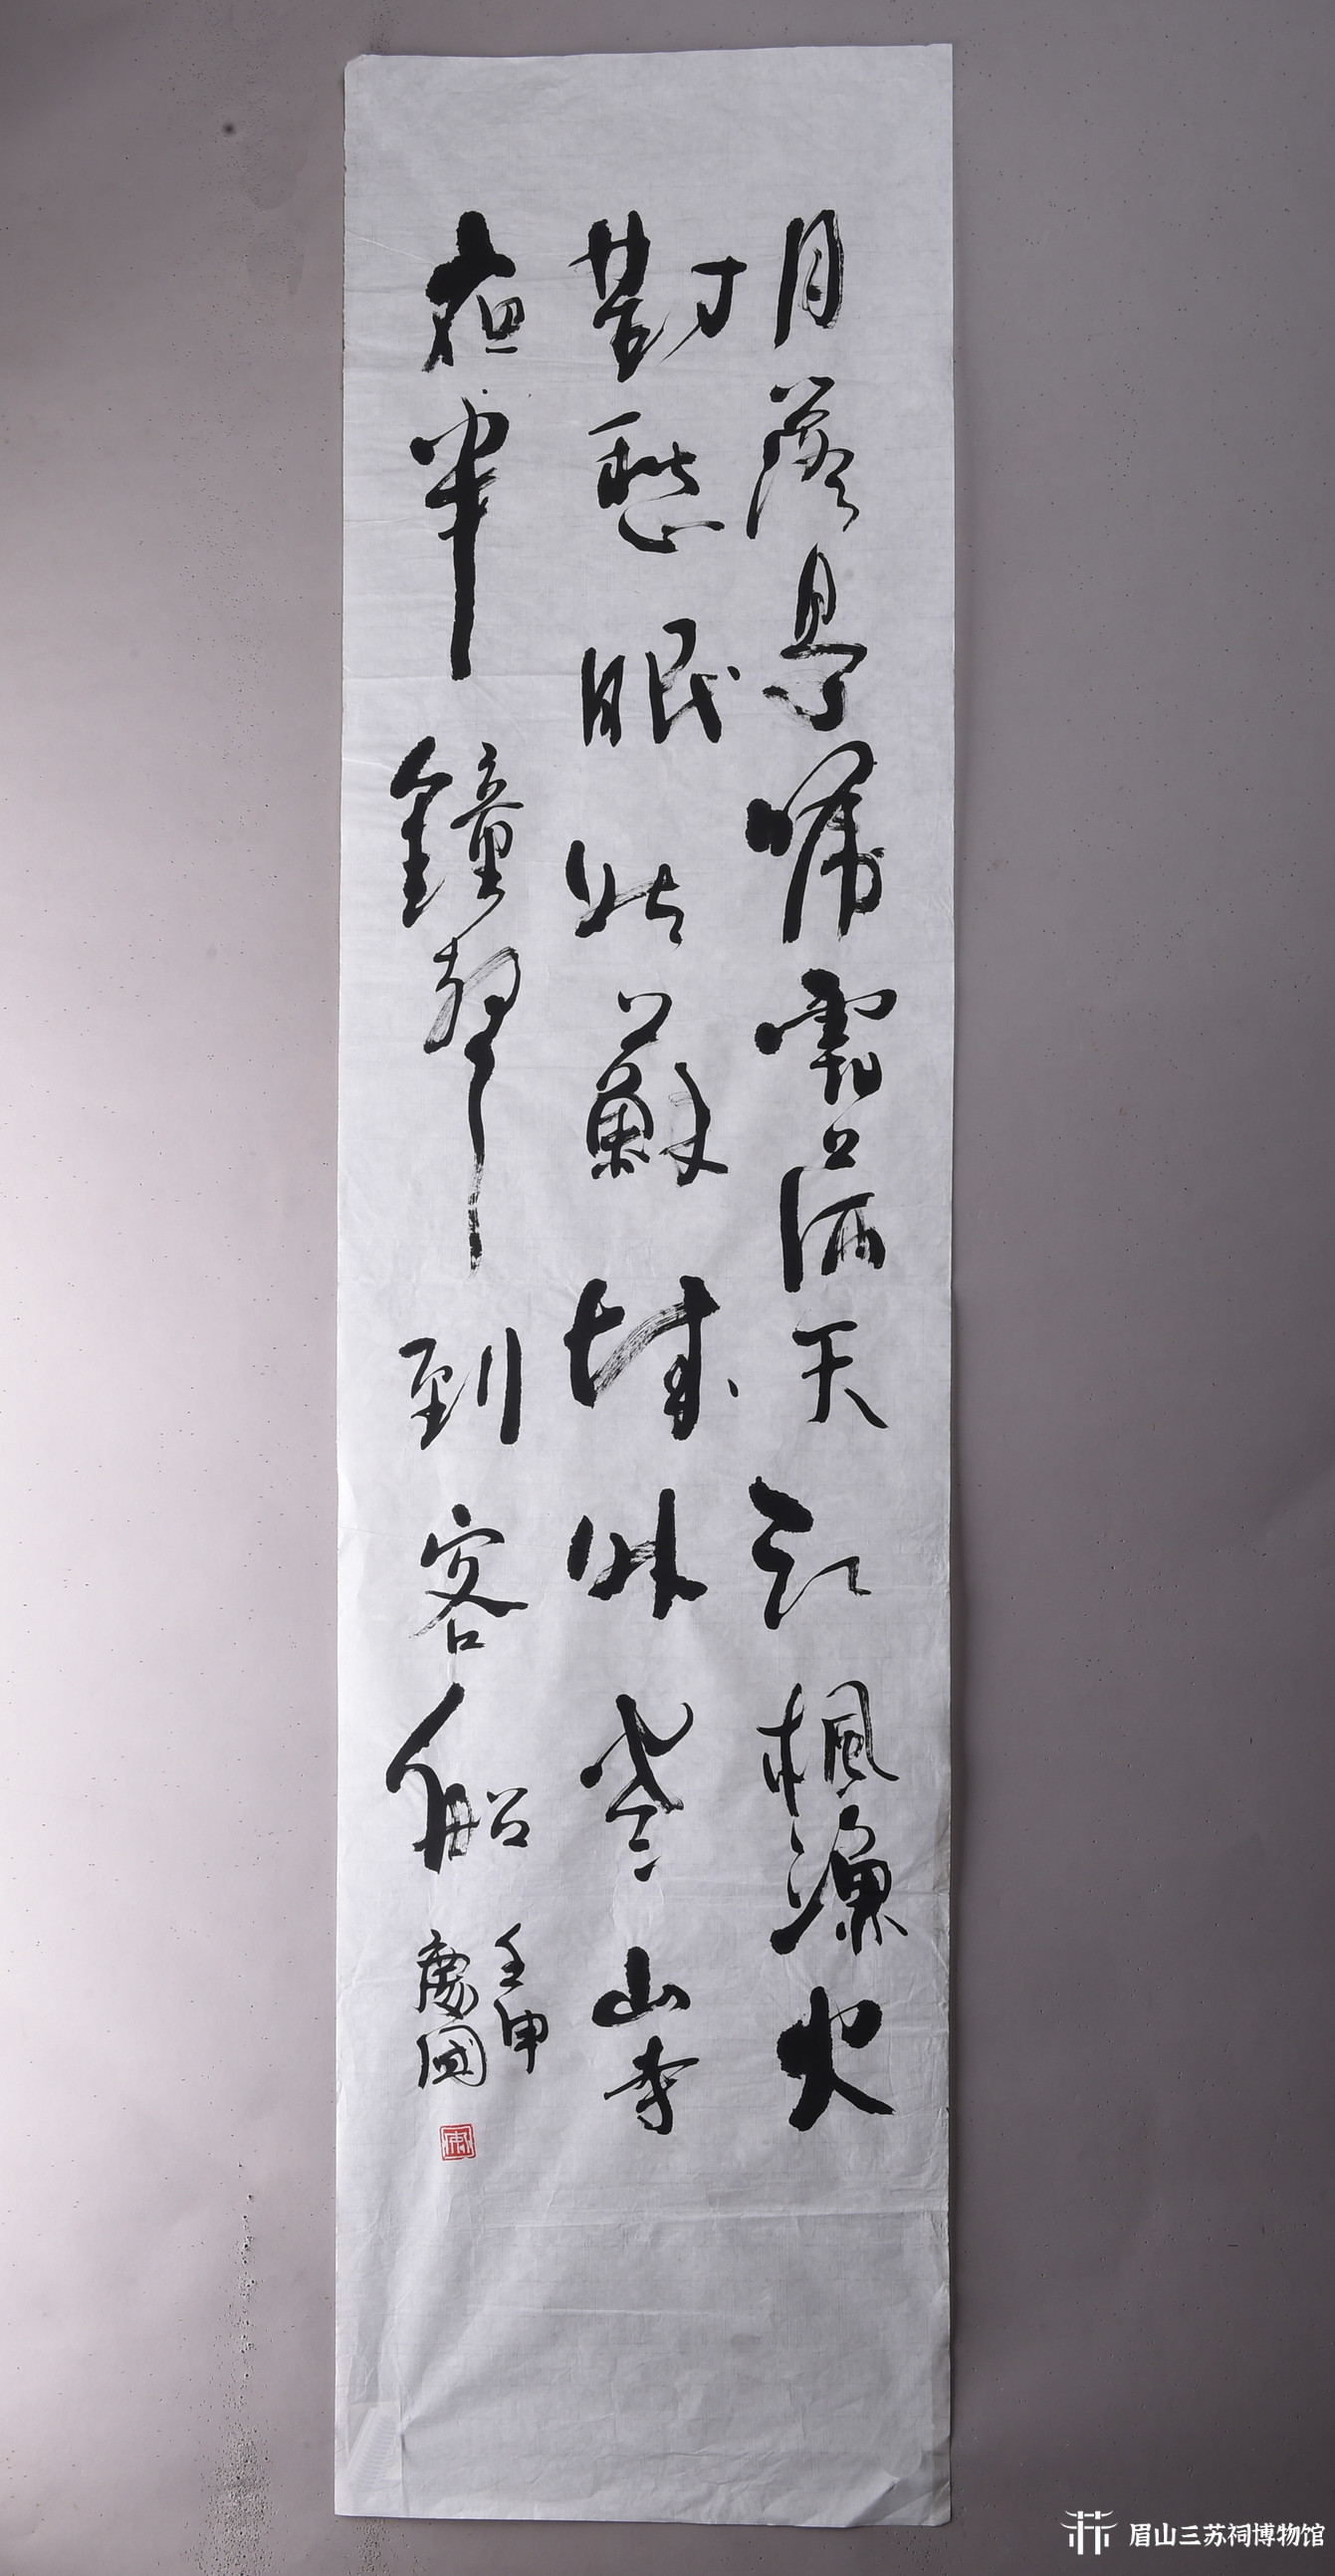 月落烏啼霜满天江楓漁火
對愁眠姑蘇城外寒山寺
夜半鐘聲到客船
壬申
慶國
眉山三苏祠博物馆